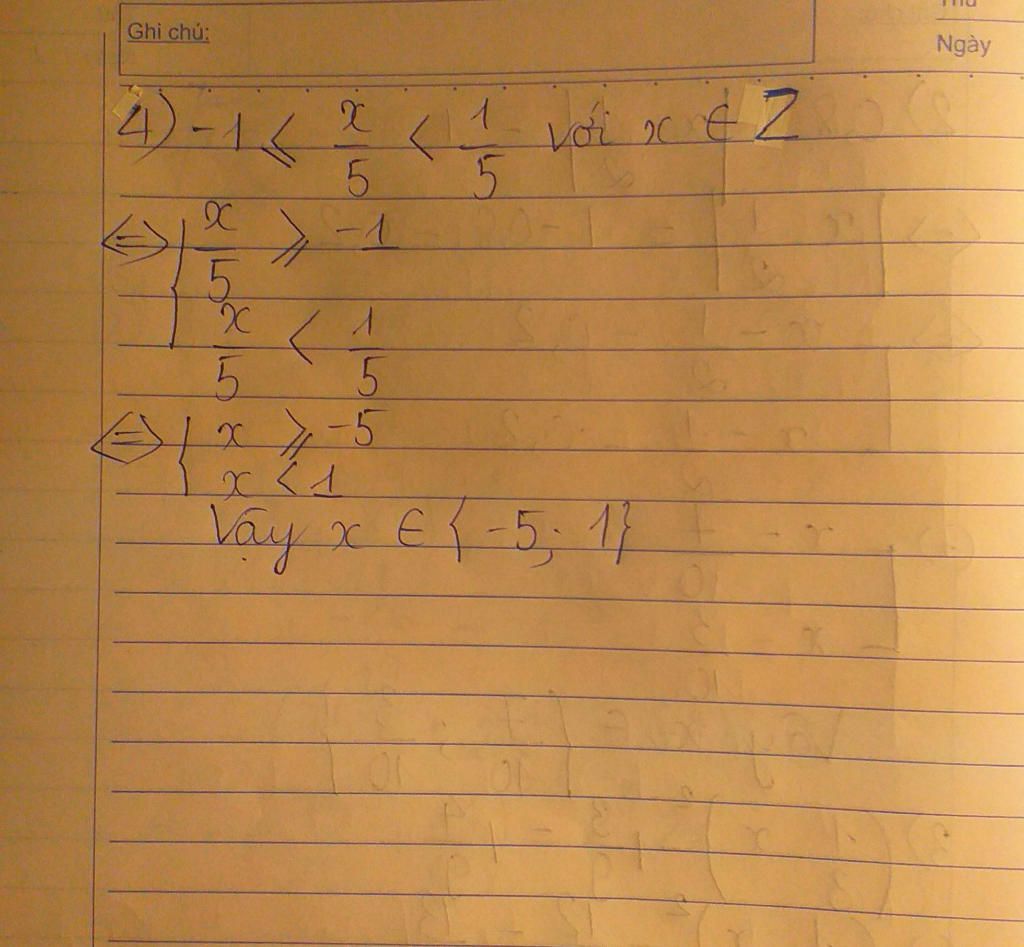 Ghi chú:
Ngày
4) -1 ⩽ x/5 < 1/5 với x ∈ Z
⇔ { x/5 ⩾ -1
x/5 < 1/5
⇔ { x ⩾ -5
x < 1
Vậy x ∈ {-5; 1}